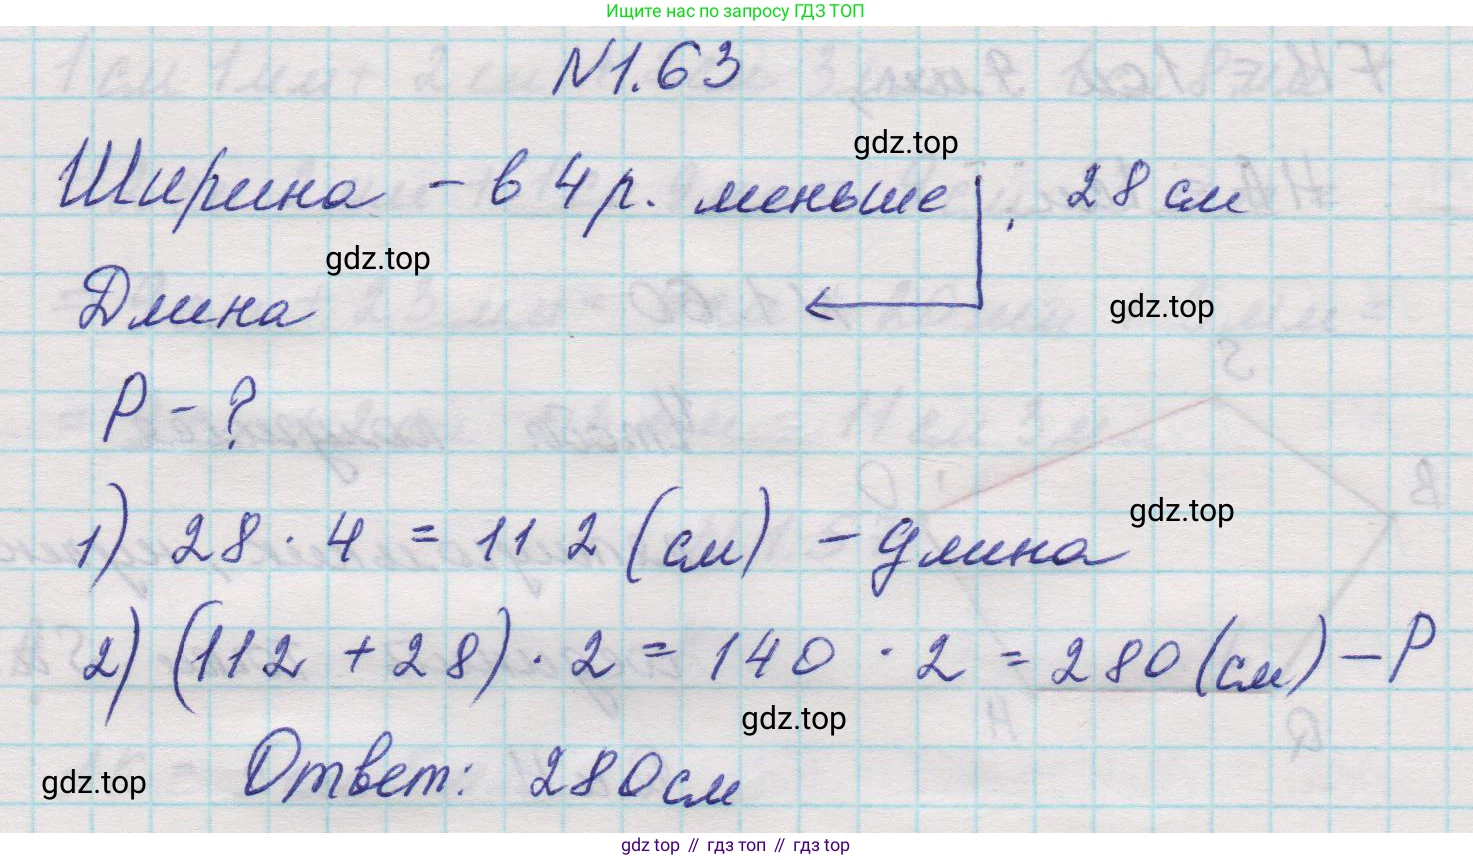 Ищите нас по запросу ГДЗ ТОП
N1.63
gdz.top
Ширина - в 4 р. меньше, 28 см
gdz.top
Длина
gdz.top
P - ?
gdz.top
1) 28 · 4 = 112 (см) - длина
2) (112 + 28) · 2 = 140 · 2 = 280 (см) - P
gdz.top
gdz.top
Ответ: 280 см
gdz top // гдз топ // gdz top